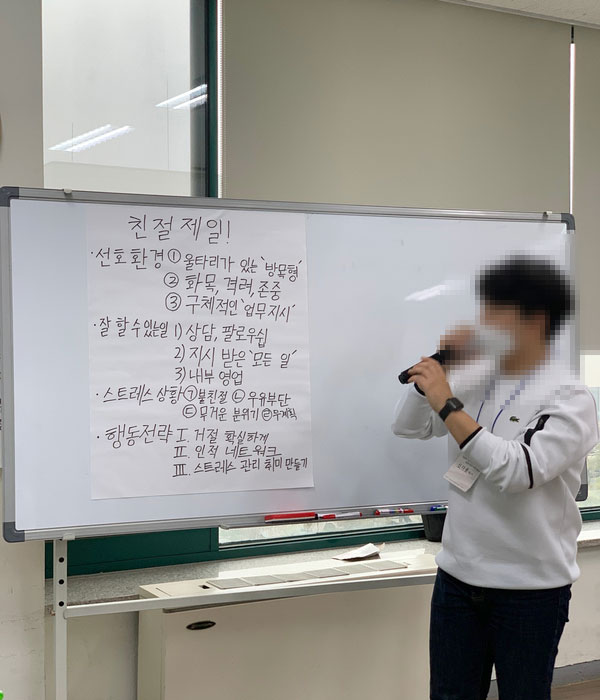 친절제일!
·선호환경 ① 울타리가 있는 '방목형'
② 화목, 격려, 존중
③ 구체적인 '업무지시'
·잘 할 수 있는 일 1) 상담, 팔로우쉽
2) 지시 받은 '모든 일'
3) 내부 영업
·스트레스 상황 ㉠ 불친절 ㉡ 우유부단
㉢ 무거운 분위기 ㉣ 무계획
·행동전략 Ⅰ. 거절 확실하게
Ⅱ. 인적 네트워크
Ⅲ. 스트레스 관리 취미 만들기